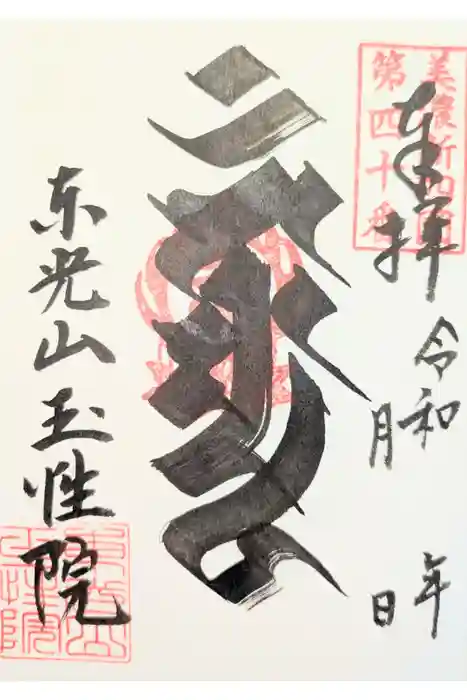 美濃新四国
第四十番
奉拝
令和　年
月　日
東光山玉性院